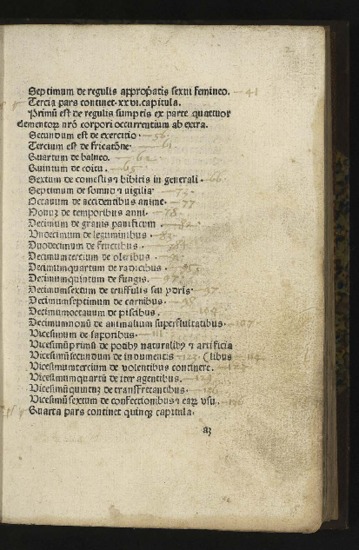 Septimum de regulis appropꝛiatis sexui femineo. — 41
Tercia pars continet ·xxvi· capitula.
Primũ est de regulis sumptis ex parte quattuor
elementoꝝ nrõ corpori occurrentium ab extra.
Secundum est de exercitio
Tercium est de fricatõne
Quartum de balneo. — 62
Quintum de coitu. — 65
Sextum de comestis ⁊ bibitis in generali — 66
Septimum de somno ⁊ uigilia — 75
Octauum de accidentibus anime — 77
Nonũ de temporibus anni. — 78
Decimum de granis panificum — 82
Undecimum de leguminibus
Duodecimum de fructibus
Decimumtercium de oleribus
Decimumquartum de radicibus
Decimumquintum de fungis.
Decimumsextum de truffulis seu ydris — 97
Decimumseptimum de carnibus — 98
Decimumoctauum de piscibus.
Decimumnonũ de animalium superfluitatibus — 107
Vicesimum de saporibus
Vicesimũprimũ de potibꝰ naturalibꝰ ⁊ artificia
Vicesimũsecundum de indumentis — 123 (libus — 114
Vicesimumtercium de volentibus continere. — 123
Vicesimumquartũ de iter agentibus. — 124
Vicesimũquintũ de transfretantibus
Vicesimũsextum de confectionibus ⁊ eaꝝ vsu.
Quarta pars continet quinqꝫ capitula.